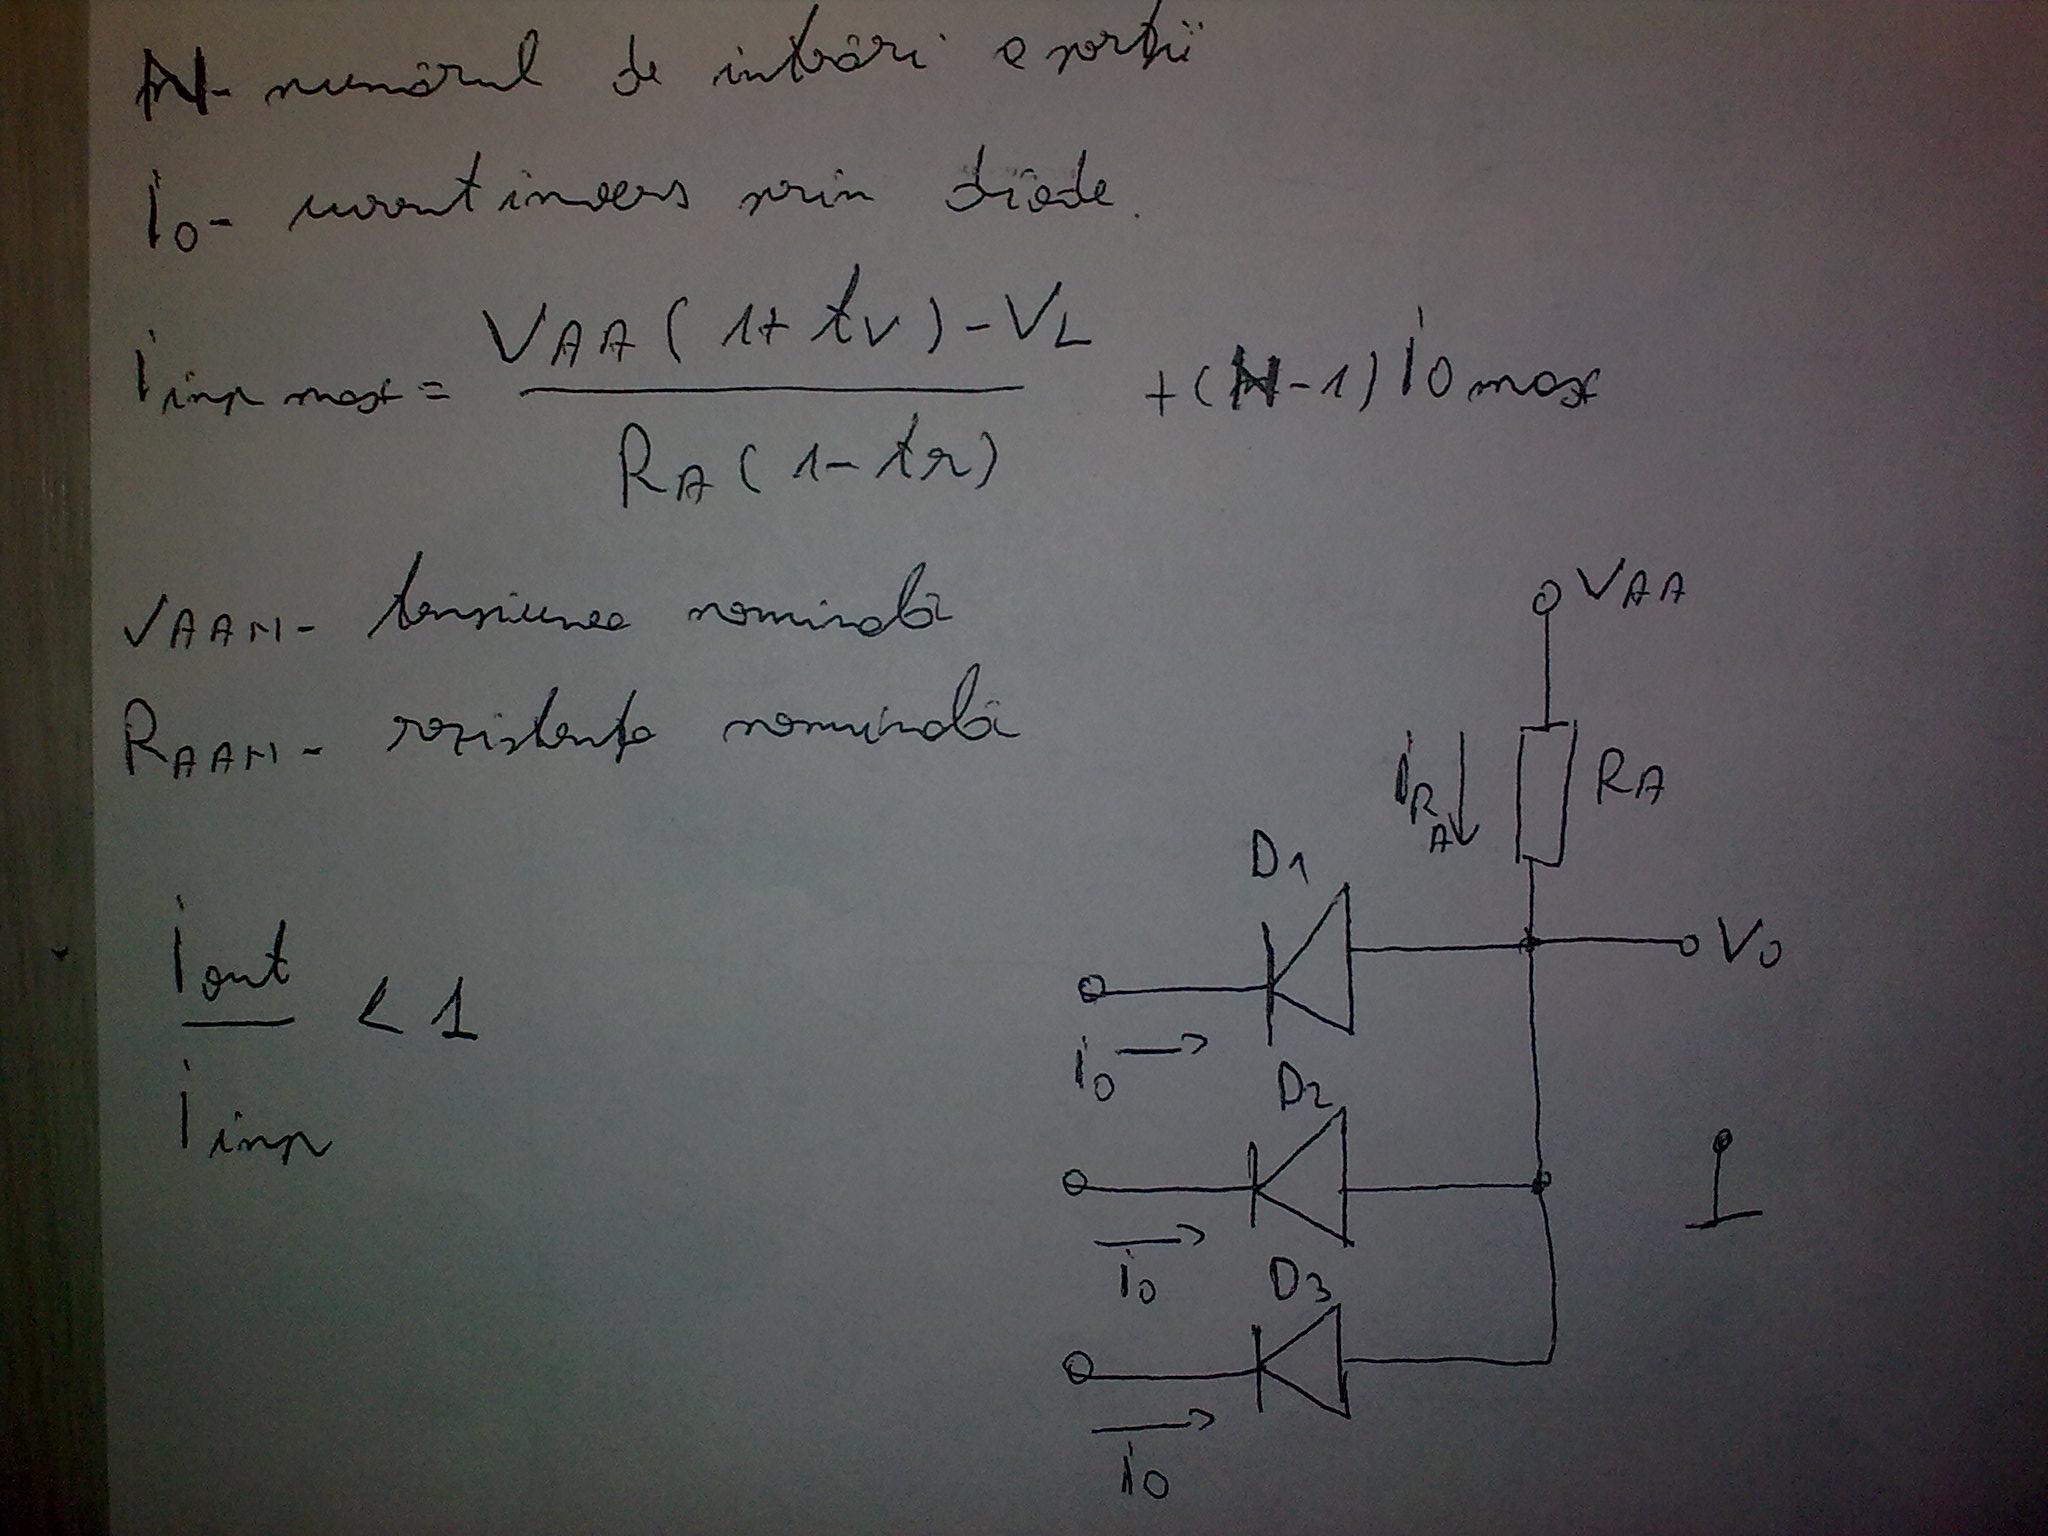 N- numărul de intrări a porții
i0- curent invers prin diode.
i inp max = VAA(1+tv)-VL / RA(1-tr) + (N-1) i0 max
VAAN- tensiunea nominală
RAAN- rezistența nominală
iout / iinp < 1
VAA
iRA
RA
D1
V0
i0
D2
i0
D3
i0